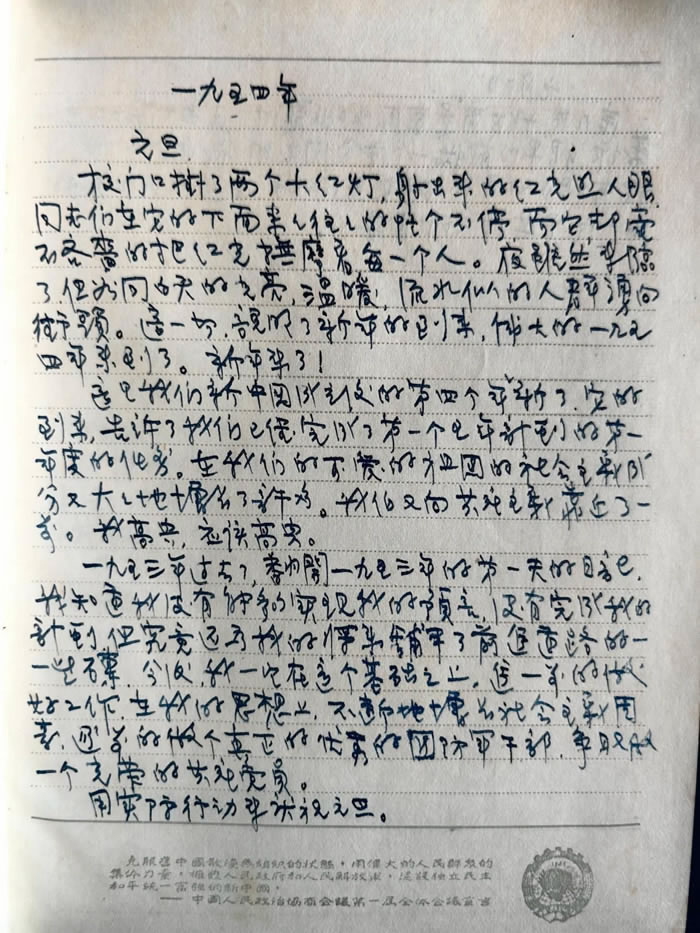 一九五四年
元旦
校门口掛了两个大红灯,射出来的红光照人眼
同志们在它的下面来来往往的忙个不停,而它却毫
不吝啬的把红光撫摩着每一个人。夜虽然来临
了但如同白天的光亮,温暖,流水似的人群湧向
街頭。這一切,說明了新年的到来,伟大的一九五
四年来到了。新年来了!
這是我们新中国成立後的第四个年新了,它的
到来,告诉了我们已經完成了第一个五年計划的第一
年度的任务。在我们的可爱的祖国的社会主義成
分又大大地增長了許多。我们又向共产主義靠近了一
步。我高興,应该高興。
一九五三年过去了,翻開一九五三年的第一天的日記,
我知道我没有能够的实现我的預言,没有完成我的
計划但究竟还为我的将来舖平了前進道路的一
一些石塊,今後,我一定在這个基础之上,進一步的做
好工作,在我的思想上,不断地增長社会主義因
素,逐步的做个真正的优秀的国防軍干部,争取做
一个光荣的共产党员。
用实际行动来庆祝元旦。
克服舊中國散漫無組織的狀態,用偉大的人民群众的
集体力量,擁護人民政府和人民解放軍,建設独立民主
和平統一富强的新中國。
——中國人民政治協商会議第一届全体会議宣言